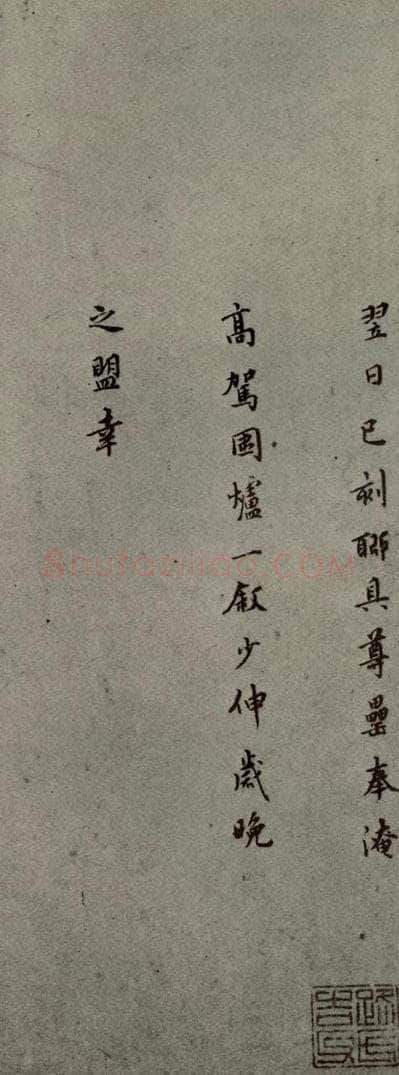 翌日巳刻聊具尊罍奉淹
高駕圍爐一敘少伸歲晚
之盟幸
Shufaziliao.COM